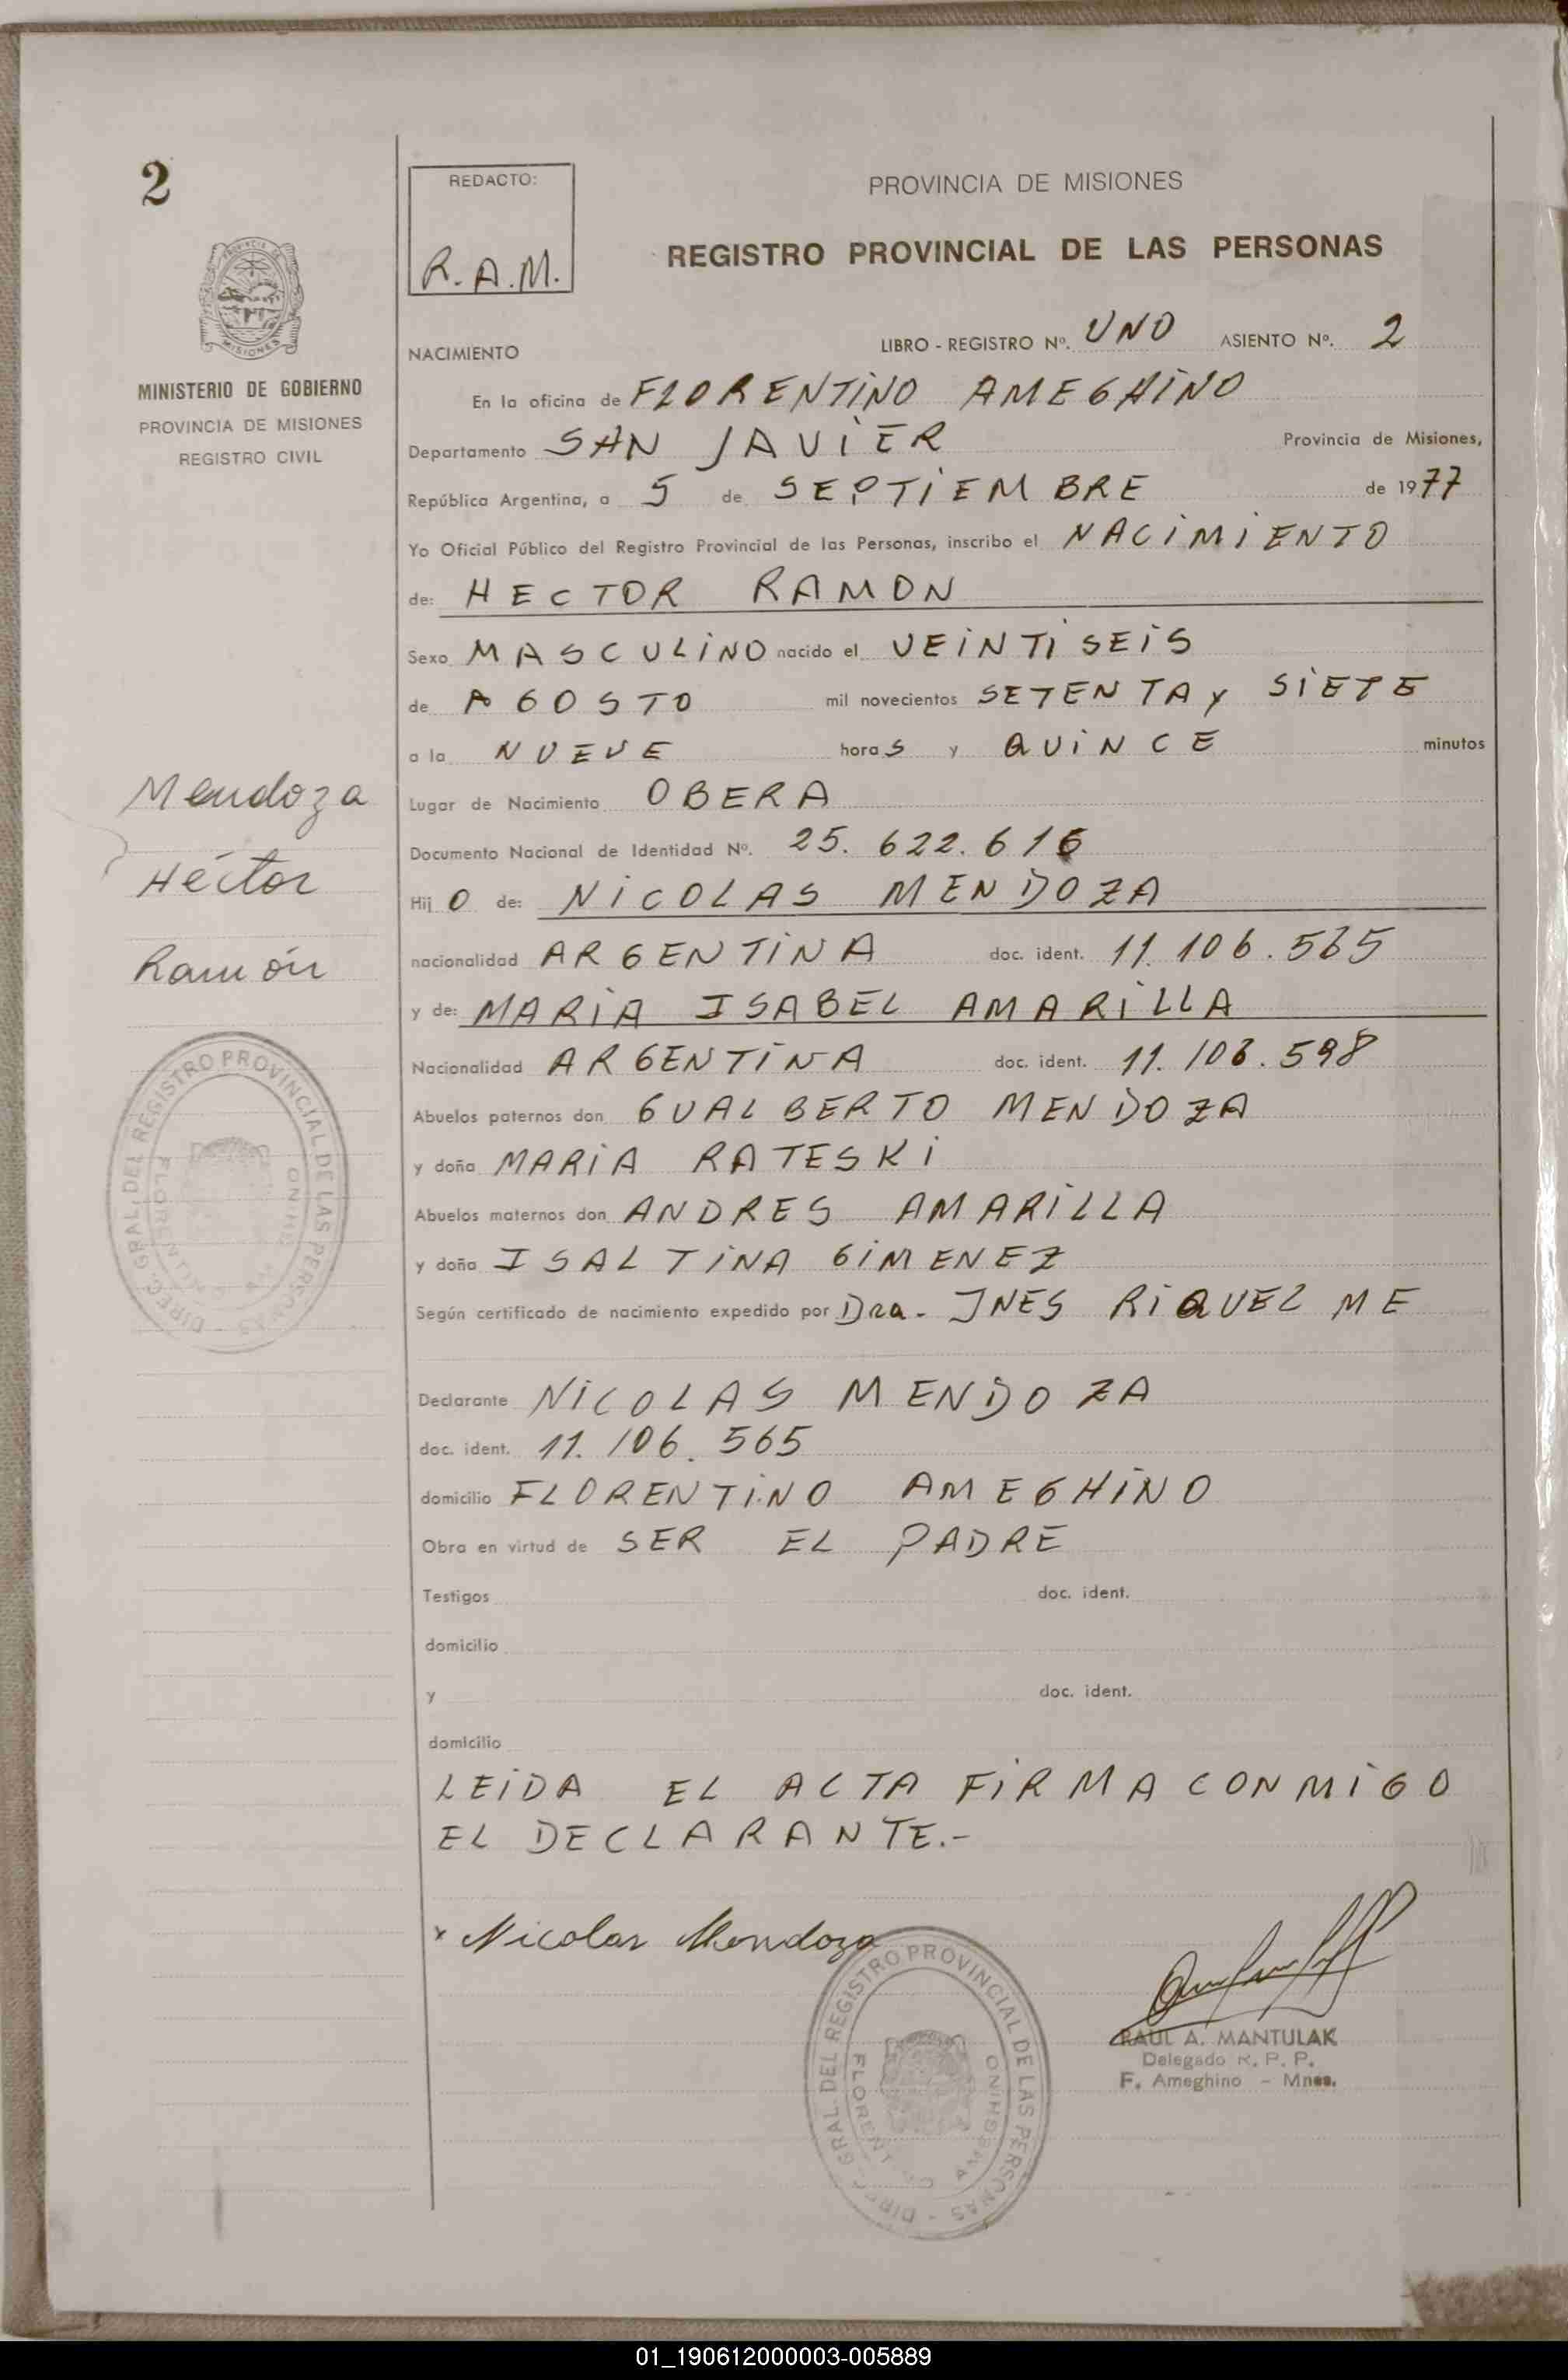 2
REDACTO:
R.A.M.
PROVINCIA DE MISIONES
REGISTRO PROVINCIAL DE LAS PERSONAS
MINISTERIO DE GOBIERNO
PROVINCIA DE MISIONES
REGISTRO CIVIL
NACIMIENTO LIBRO - REGISTRO Nº. UNO ASIENTO Nº. 2
En la oficina de FLORENTINO AMEGHINO
Departamento SAN JAVIER Provincia de Misiones,
República Argentina, a 5 de SEPTIEMBRE de 1977
Yo Oficial Público del Registro Provincial de las Personas, inscribo el NACIMIENTO
de: HECTOR RAMON
Sexo MASCULINO nacido el VEINTISEIS
de AGOSTO mil novecientos SETENTA y SIETE
a la NUEVE horas y QUINCE minutos
Lugar de Nacimiento OBERA
Documento Nacional de Identidad Nº. 25.622.616
Hijo de: NICOLAS MENDOZA
nacionalidad ARGENTINA doc. ident. 11.106.565
y de: MARIA ISABEL AMARILLA
Nacionalidad ARGENTINA doc. ident. 11.106.598
Abuelos paternos don GUALBERTO MENDOZA
y doña MARIA RATESKI
Abuelos maternos don ANDRES AMARILLA
y doña ISALTINA GIMENEZ
Según certificado de nacimiento expedido por Dra. INES RIQUELME
Declarante NICOLAS MENDOZA
doc. ident. 11.106.565
domicilio FLORENTINO AMEGHINO
Obra en virtud de SER EL PADRE
Testigos doc. ident.
domicilio
y doc. ident.
domicilio
LEIDA EL ACTA FIRMA CONMIGO
EL DECLARANTE.-
Mendoza
Héctor
Ramón
DIREC. GRAL. DEL REGISTRO PROVINCIAL DE LAS PERSONAS
x Nicolas Mendoza
DIREC. GRAL. DEL REGISTRO PROVINCIAL DE LAS PERSONAS
FLORENTINO AMEGHINO
RAUL A. MANTULAK
Delegado R. P. P.
F. Ameghino - Mnes.
01_190612000003-005889